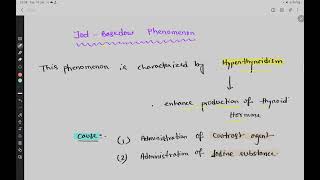 Jod-Basedow Phenomenon
This phenomenon is characterized by Hyperthyroidism
enhance production of thyroid
Hormone
Cause:- (1) Administration of Contrast agent
(2) Administration of Iodine substance